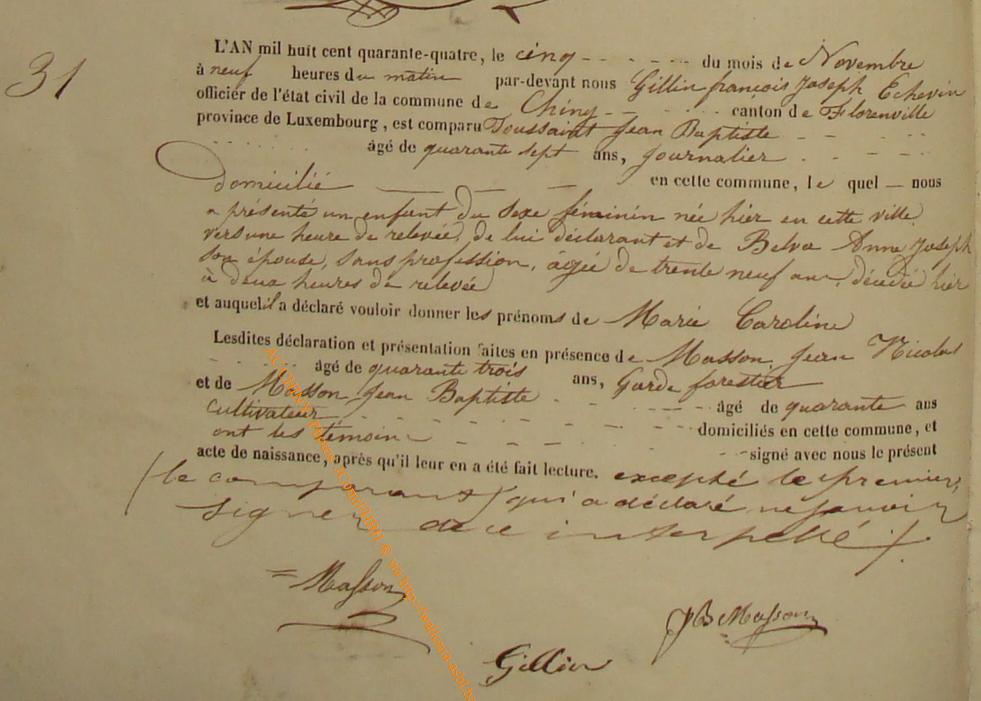 31
L'AN mil huit cent quarante-quatre, le cinq - - - - - du mois de Novembre
à neuf heures du matin par-devant nous Gillin françois Joseph Echevin
officier de l'état civil de la commune de Chiny - - - - canton de Florenville
province de Luxembourg, est comparu Toussaint Jean Baptiste - - -
- - - - - âgé de quarante sept ans, Journalier - - - -
Domicilié — — — en cette commune, le quel — nous
a présenté un enfant du sexe féminin née hier en cette ville
vers une heure de relevée, de lui déclarant et de Belva Anne Joseph
son épouse, sans profession, âgée de trente neuf ans, décédée hier
à deux heures de relevée
et auquel il a déclaré vouloir donner les prénoms de Marie Caroline
Lesdites déclaration et présentation faites en présence de Masson Jean Nicolas
- - - - âgé de quarante trois ans, Garde forestier
et de Masson Jean Baptiste - - - - - âgé de quarante ans
Cultivateur - - - - - domiciliés en cette commune, et
ont les témoins - - - - - signé avec nous le présent
acte de naissance, après qu'il leur en a été fait lecture. excepté le premier,
(le comparant) qui a déclaré ne savoir
signer de ce interpellé /.
= Masson
JB Masson
Gillin